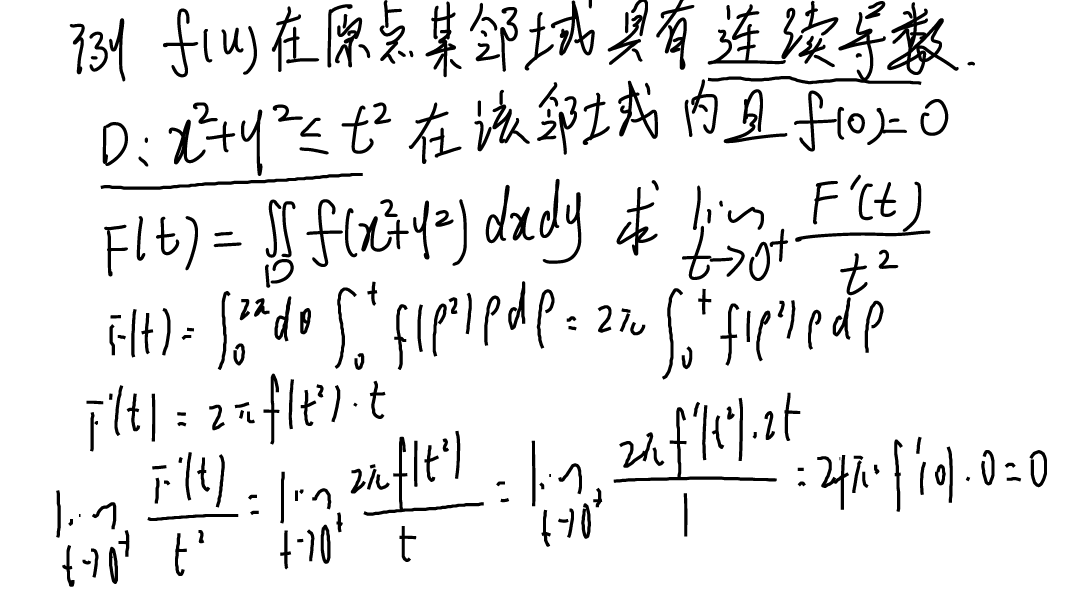 例 f(u)在原点某邻域具有连续导数.
D: x²+y²≤t² 在该邻域内且 f(0)=0
F(t)=∬_D f(x²+y²)dxdy 求 lim_{t→0⁺} F'(t)/t²
F(t)=∫₀^{2π}dθ∫₀^t f(ρ²)ρdρ=2π∫₀^t f(ρ²)ρdρ
F'(t)=2πf(t²)·t
lim_{t→0⁺} F'(t)/t² = lim_{t→0⁺} 2πf(t²)/t = lim_{t→0⁺} 2πf'(t²)·2t/1 = 4π·f'(0)·0=0